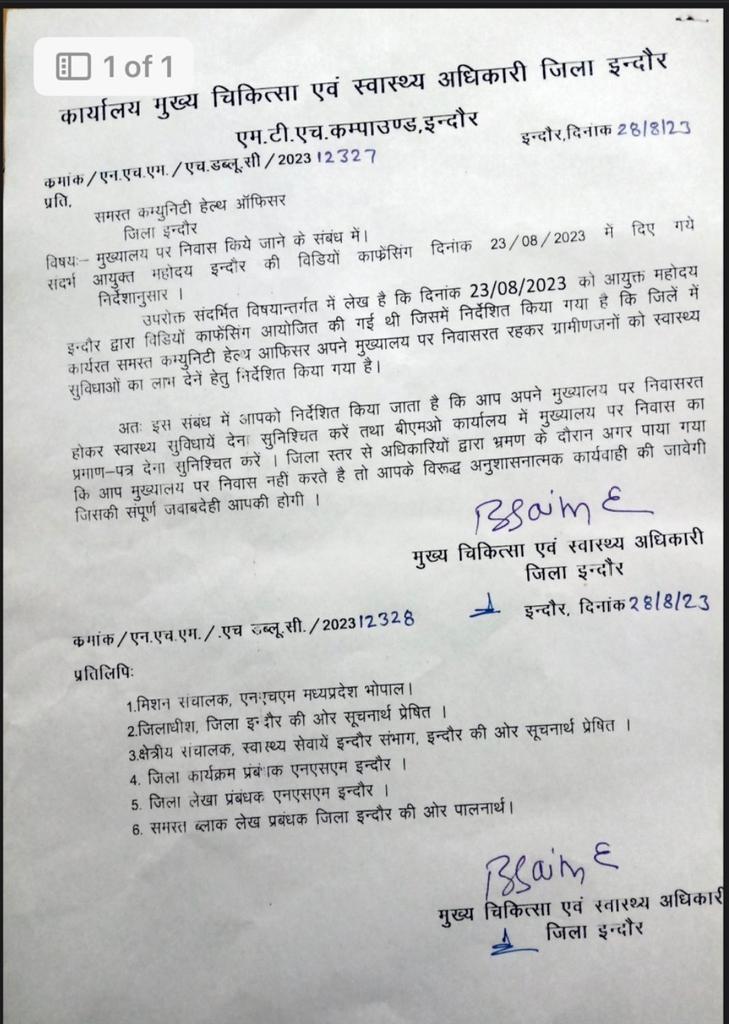 1 of 1
कार्यालय मुख्य चिकित्सा एवं स्वास्थ्य अधिकारी जिला इन्दौर
एम.टी.एच.कम्पाउण्ड,इन्दौर
कमांक/एन.एच.एम./एच.डब्लू.सी/2023 12327
इन्दौर,दिनांक 28/8/23
प्रति,
समस्त कम्युनिटी हेल्थ ऑफिसर
जिला इन्दौर
विषयः– मुख्यालय पर निवास किये जाने के संबंध में।
संदर्भ आयुक्त महोदय इन्दौर की विडियों काफेंसिंग दिनांक 23/08/2023 में दिए गये
निर्देशानुसार ।
उपरोक्त संदर्भित विषयान्तर्गत में लेख है कि दिनांक 23/08/2023 को आयुक्त महोदय
इन्दौर द्वारा विडियों काफेंसिंग आयोजित की गई थी जिसमें निर्देशित किया गया है कि जिलें में
कार्यरत समस्त कम्युनिटी हेल्थ आफिसर अपने मुख्यालय पर निवासरत रहकर ग्रामीणजनों को स्वास्थ्य
सुविधाओं का लाभ देनें हेतु निर्देशित किया गया है।
अतः इस संबंध में आपको निर्देशित किया जाता है कि आप अपने मुख्यालय पर निवासरत
होकर स्वास्थ्य सुविधायें देना सुनिश्चित करें तथा बीएमओ कार्यालय में मुख्यालय पर निवास का
प्रमाण–पत्र देना सुनिश्चित करें । जिला स्तर से अधिकारियों द्वारा भ्रमण के दौरान अगर पाया गया
कि आप मुख्यालय पर निवास नहीं करते है तो आपके विरूद्ध अनुशासनात्मक कार्यवाही की जावेगी
जिसकी संपूर्ण जवाबदेही आपकी होगी ।
मुख्य चिकित्सा एवं स्वास्थ्य अधिकारी
जिला इन्दौर
कमांक/एन.एच.एम./.एच डब्लू.सी./2023 12328
इन्दौर, दिनांक 28/8/23
प्रतिलिपिः
1.मिशन संचालक, एनएचएम मध्यप्रदेश भोपाल।
2.जिलाधीश, जिला इन्दौर की ओर सूचनार्थ प्रेषित ।
3.क्षेत्रीय संचालक, स्वास्थ्य सेवायें इन्दौर संभाग, इन्दौर की ओर सूचनार्थ प्रेषित ।
4. जिला कार्यक्रम प्रबंधक एनएसएम इन्दौर ।
5. जिला लेखा प्रबंधक एनएसएम इन्दौर ।
6. समस्त ब्लाक लेख प्रबंधक जिला इन्दौर की ओर पालनार्थ।
मुख्य चिकित्सा एवं स्वास्थ्य अधिकारी
जिला इन्दौर